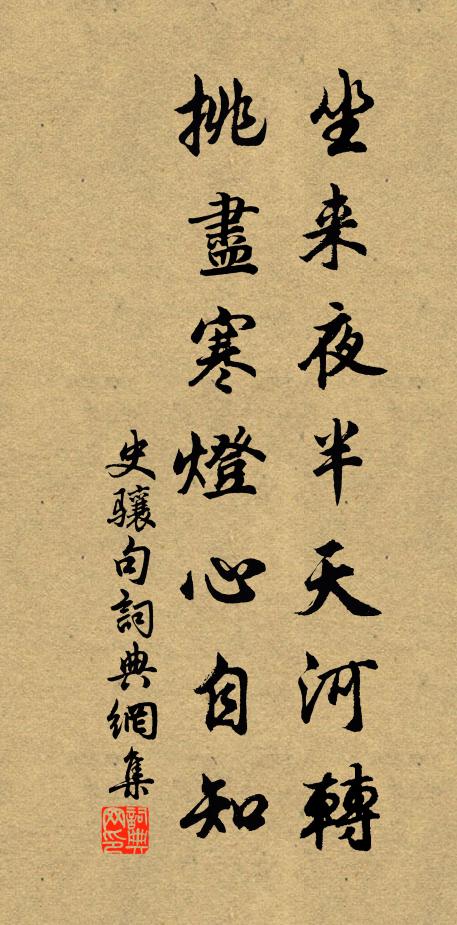 坐来夜半天河轉
挑盡寒燈心自知
史骧句詞典網集
詞典
网印